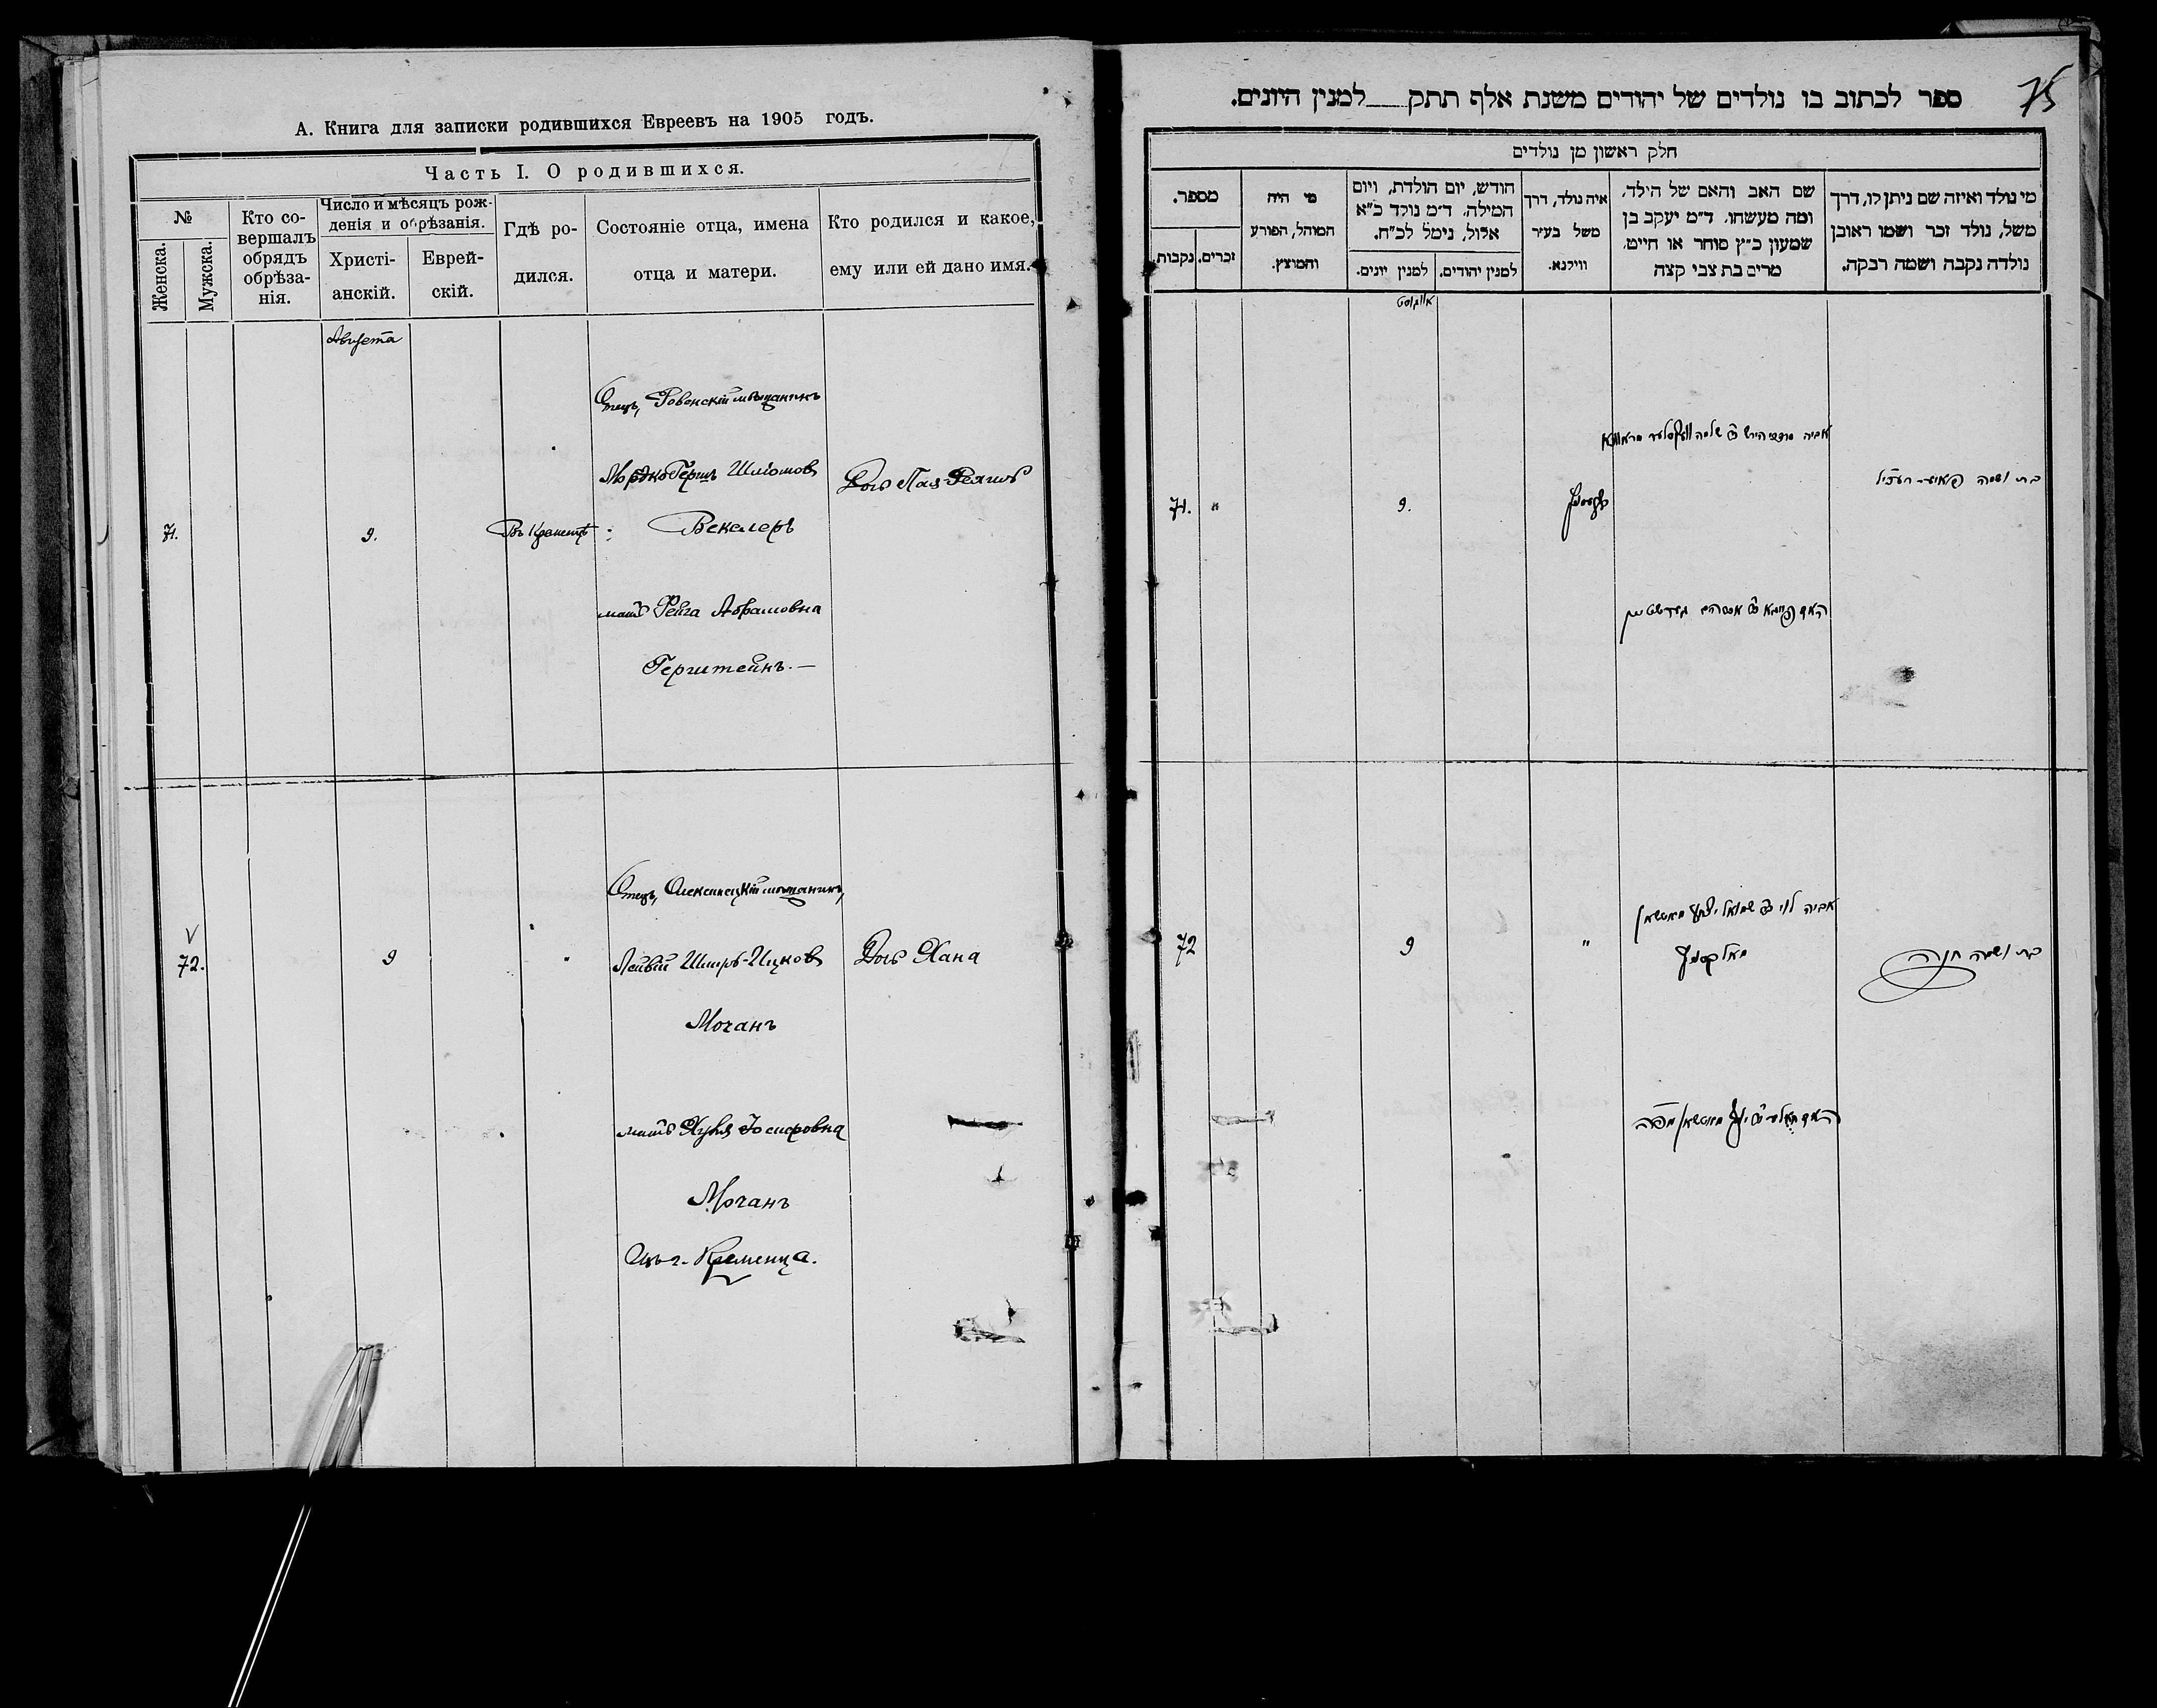 А. Книга для записки родившихся Евреевъ на 1905 годъ.
Часть I. О родившихся.
№
Женска.
Мужска.
Кто со-
вершалъ
обрядъ
обрѣза-
нія.
Число и мѣсяцъ рож-
денія и обрѣзанія.
Христі-
анскій.
Еврей-
скій.
Гдѣ ро-
дился.
Состояніе отца, имена
отца и матери.
Кто родился и какое,
ему или ей дано имя.
Августа
71.
9.
Въ Кременцѣ
Отецъ, Ровенскій мѣщанинъ
Мордко-Герш Шлiомовъ
Векслеръ
мать Фейга Абрамовна
Герштейнъ. —
Дочь
72.
9
"
Отецъ, Олексинецкій мѣщанинъ,
Лейвій Шмуль-Ицковъ
Мочанъ
мать Хувля Іосифовна
Мочанъ
г. Кременца.
Дочь Хана
75
ספר לכתוב בו נולדים של יהודים משנת אלף תתק למנין היונים.
חלק ראשון מן נולדים
מי נולד ואיזה שם ניתן לו, דרך
משל, נולד זכר ושמו ראובן
נולדה נקבה ושמה רבקה.
שם האב והאם של הילד,
ומה מעשהו. ד״מ יעקב בן
שמעון כ״ץ סוחר או חייט,
מרים בת צבי קצה
איה נולד, דרך
משל בעיר
ווילנא.
חודש, יום הולדת, ויום
המילה. ד״מ נולד כ״א
אלול, נימל לכ״ח.
למנין יהודים.
למנין יונים.
מי היה
המוהל, הפורע
והמוצץ.
מספר.
זכרים.
נקבות.
אויגוסט
71.
"
9.
קרעמניץ
אביה מרדכי הירש ב״ר שלמה וועקסלער מראוונא
האם פייגא ב״ר אברהם גערשטיין
בת ושמה
72
9
"
אביה לוי ב״ר שמואל יצחק מאטשאן
מאלקסניץ
בת ושמה חנה